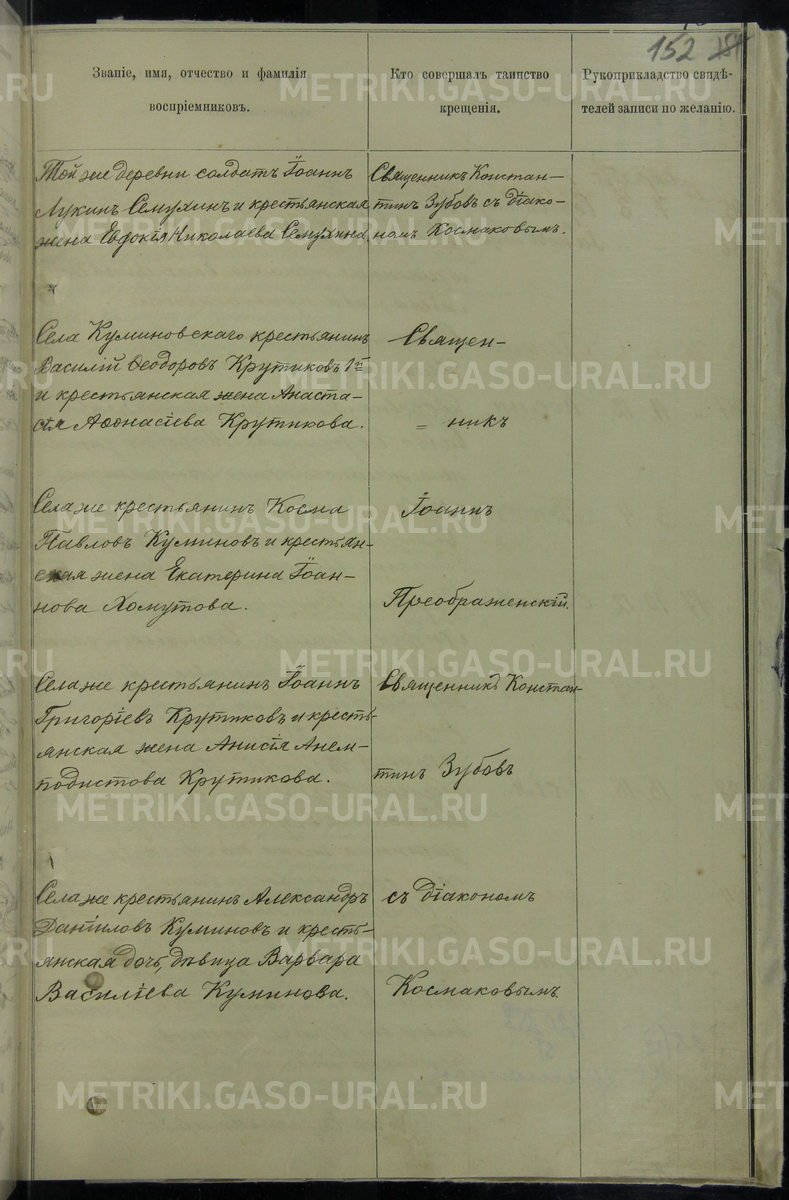 152
Званіе, имя, отчество и фамилія
воспріемниковъ.
Кто совершалъ таинство
крещенія.
Рукоприкладство свидѣ-
телей записи по желанію.
Той же деревни солдатъ Іоаннъ
Лукинъ Семухинъ и крестьянская
жена Евдокія Николаева Семухина.
Священникъ Констан-
тинъ Зубовъ съ діако-
номъ Космаковымъ.
Села Куминовскаго крестьянинъ
Василій Ѳеодоровъ Крутиковъ 1й
и крестьянская жена Анаста-
сія Аѳонасіева Крутикова.
Священ-
= никъ
Села же крестьянинъ Косма
Павловъ Куминовъ и крестьян-
ская жена Екатерина Іоан-
нова Хомутова.
Іоаннъ
Преображенскій.
Села же крестьянинъ Іоаннъ
Григоріевъ Крутиковъ и кресть-
янская жена Анисія Анем-
подистова Крутикова.
Священникъ Констан-
тинъ Зубовъ
Села же крестьянинъ Александръ
Даніиловъ Куминовъ и кресть-
янская дочь, дѣвица Варвара
Василіева Куминова.
съ діакономъ
Космаковымъ.
METRIKI.GASO-URAL.RU